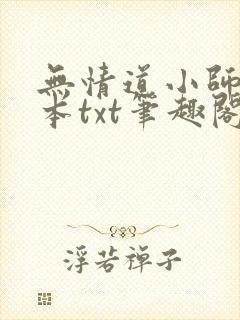 無情道小師
本txt筆趣閣
浮若禪子